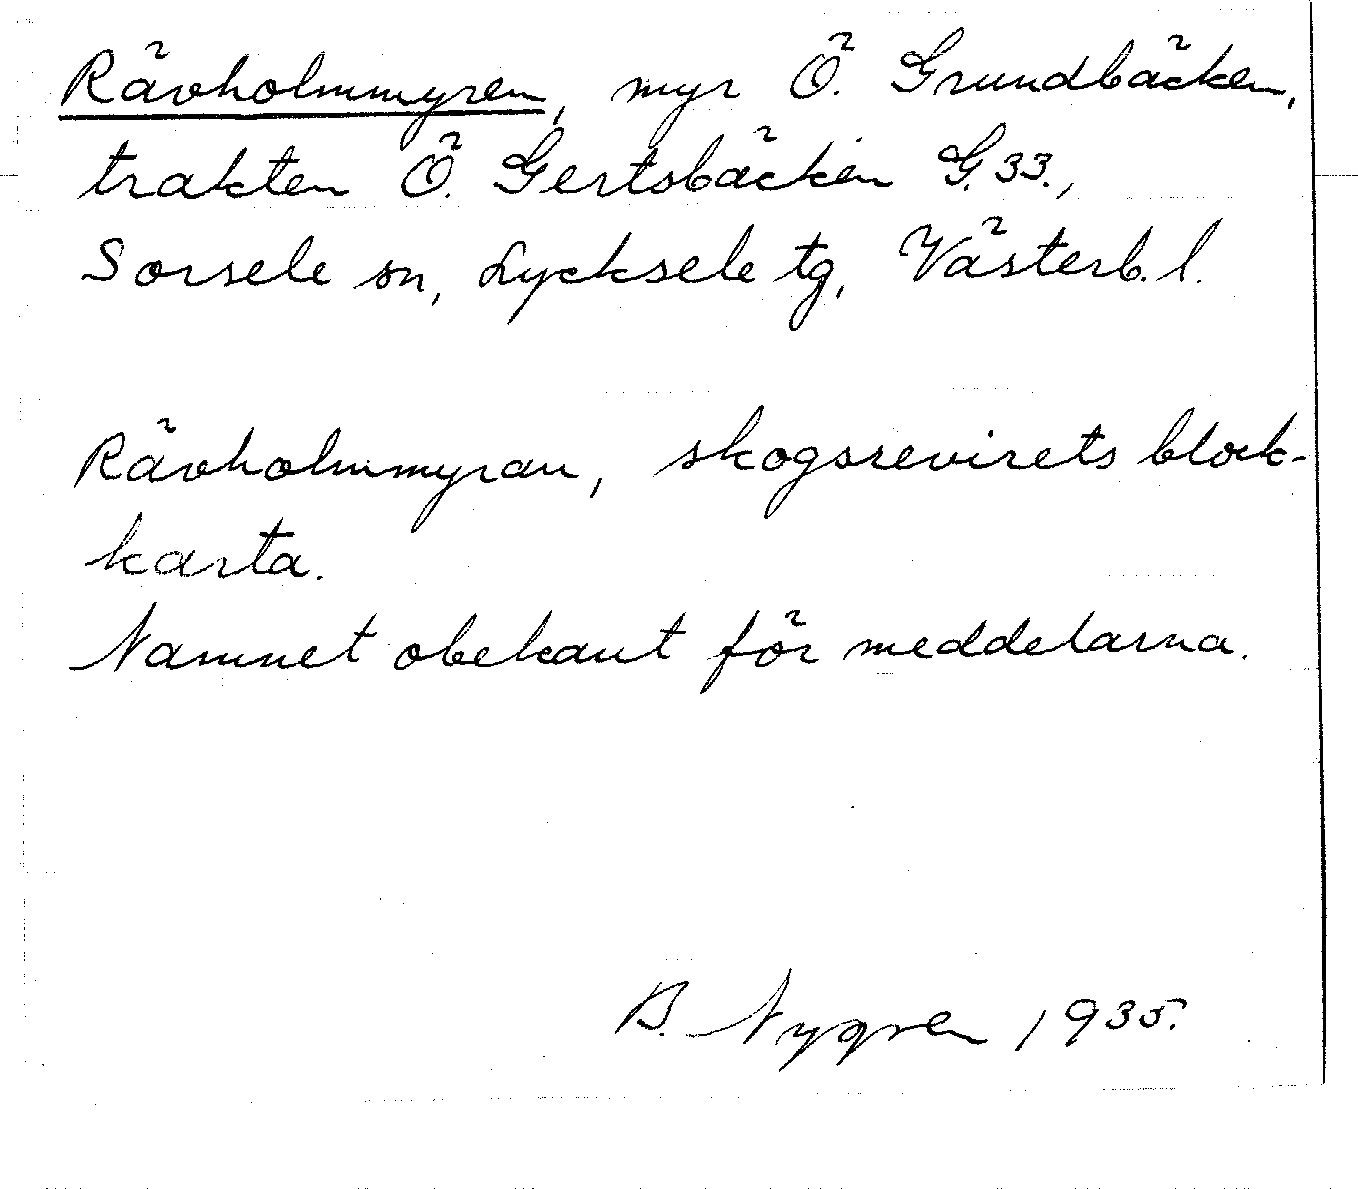 Rävholmmyren, myr Ö. Grundbäcken,
trakten Ö. Gertsbäcken G. 33.,
Sorsele sn, Lycksele tg, Västerb. l.
Rävholmmyran, skogsrevirets block-
karta.
Namnet obekant för meddelarna.
B. Nygren 1935.